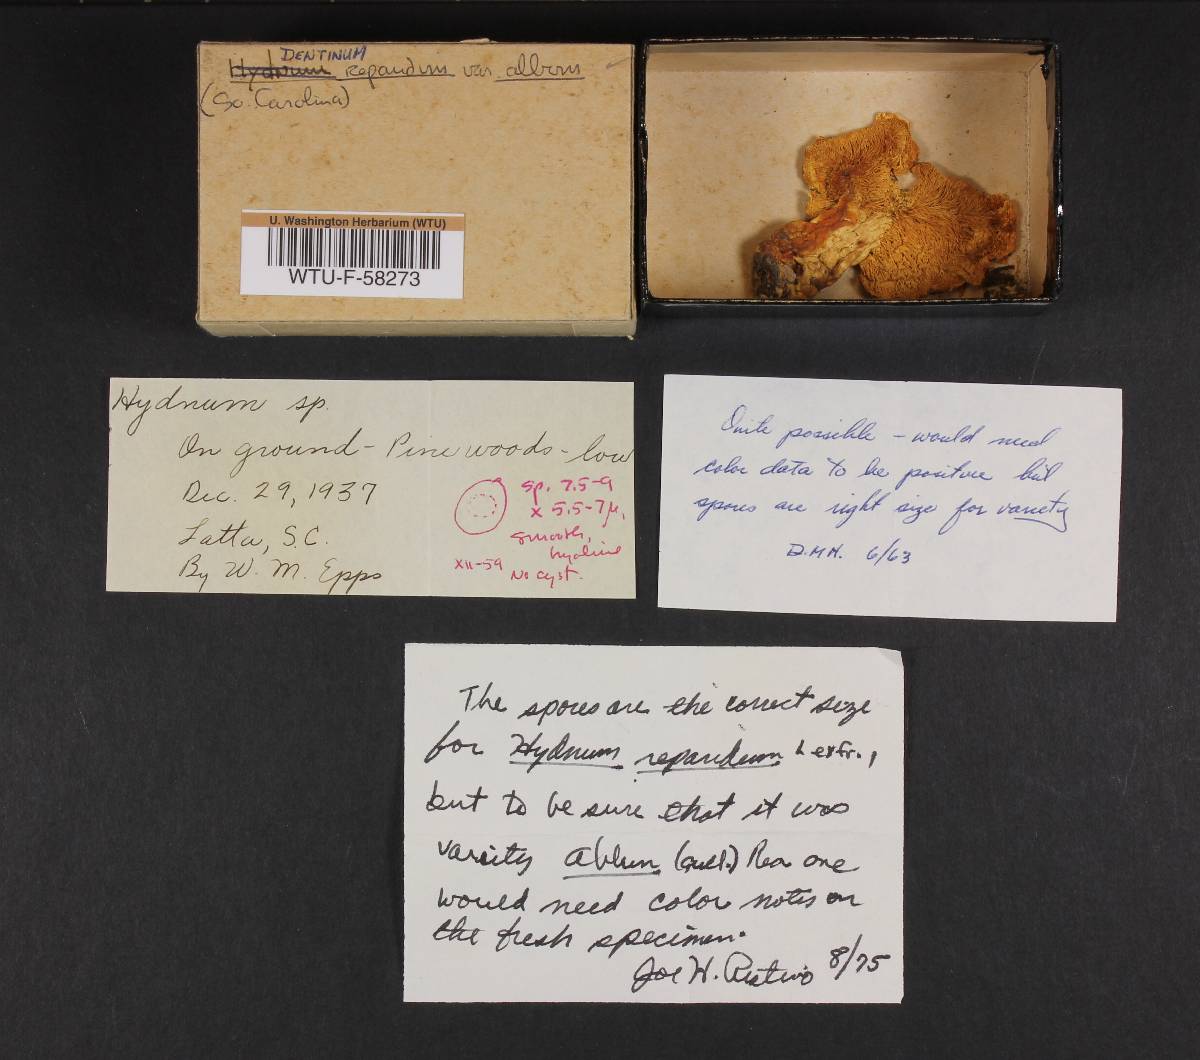 DENTINUM
Hydnum repandum var. album
(So. Carolina)
U. Washington Herbarium (WTU)
WTU-F-58273
Hydnum sp.
On ground - Pine woods - low
Dec. 29, 1937
Latta, S.C.
By W. M. Epps
sp. 7.5-9
x 5.5-7µ,
smooth,
hyaline
No cyst.
XII-59
Quite possible - would need
color data to be positive but
spores are right size for variety
6/63
The spores are the correct size
for Hydnum repandum L ex fr.,
but to be sure that it was
variety album (Quel.) Rea one
would need color notes on
the fresh specimen.
Joe H. 8/75